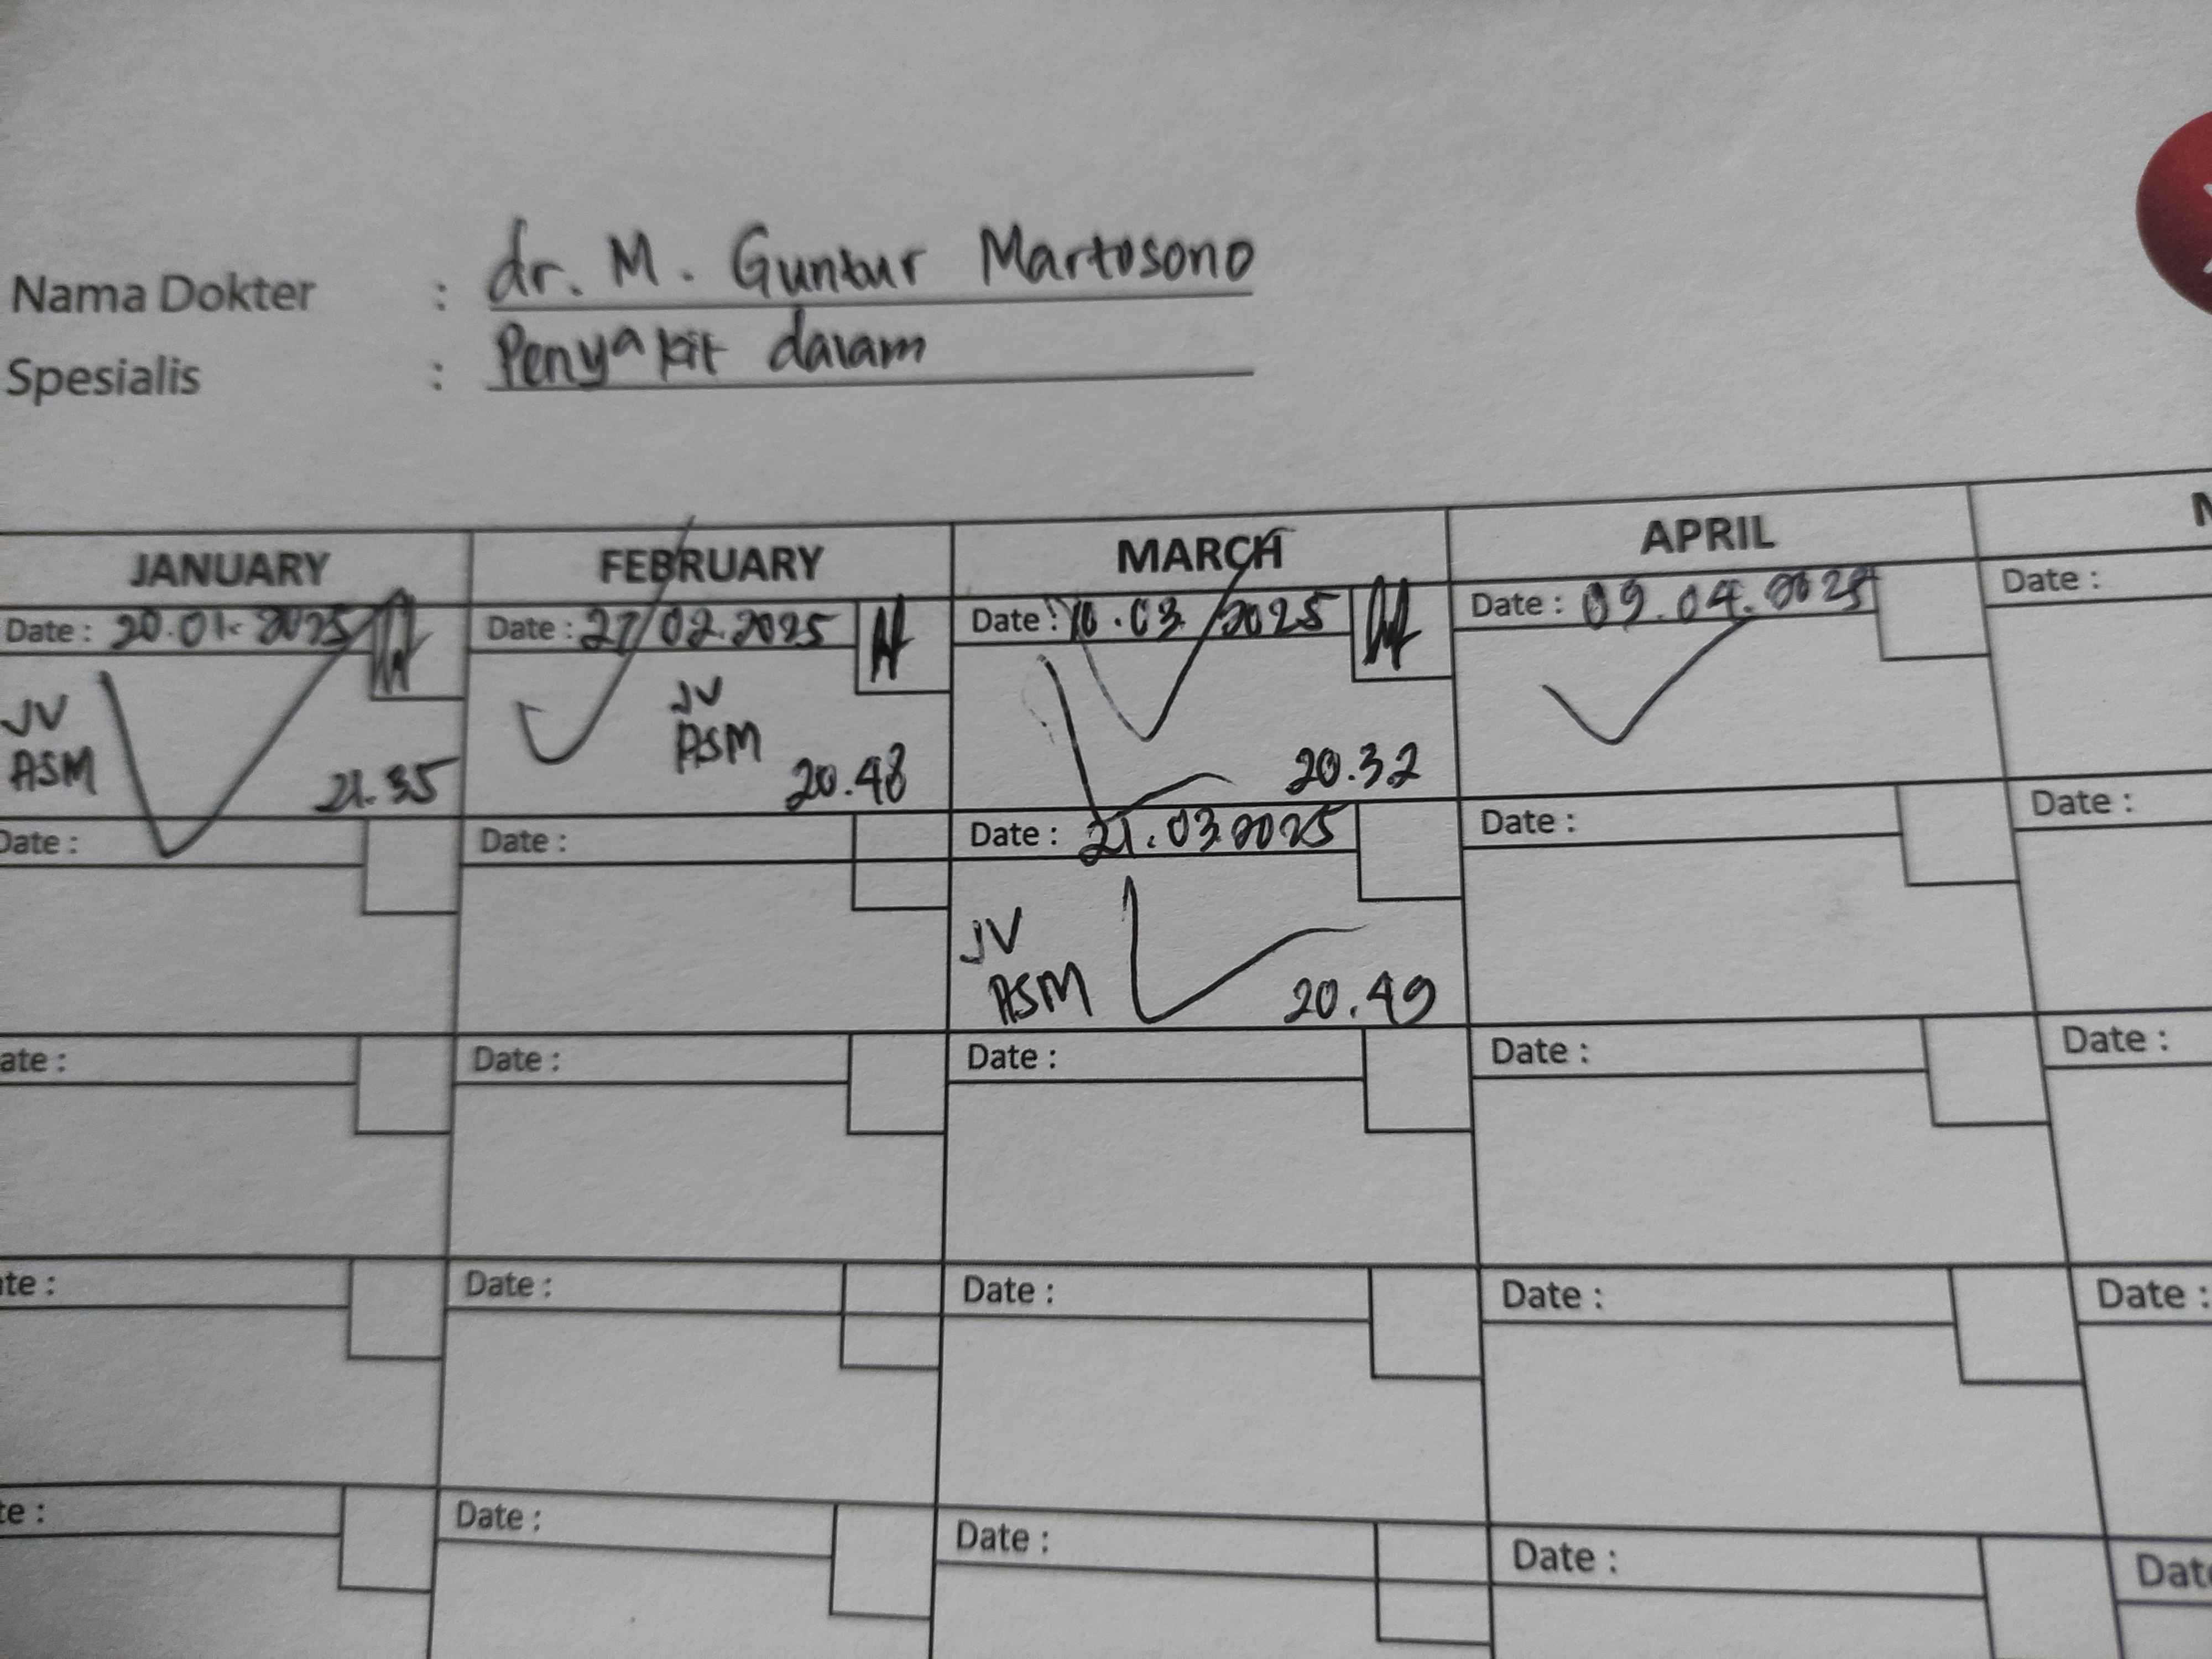 Nama Dokter : dr. M. Guntur Martosono
Spesialis : Penyakit dalam
JANUARY FEBRUARY MARCH APRIL
Date : 20.01.2025 Date : 27/02.2025 Date : 10.03.2025 Date : 09.04.2025 Date :
JV ASM 21.35
JV ASM 20.48
20.32
Date : Date : Date : 21.03.2025 Date : Date :
JV
ASM 20.49
ate : Date : Date : Date : Date :
te : Date : Date : Date : Date :
te : Date : Date : Date : Dat